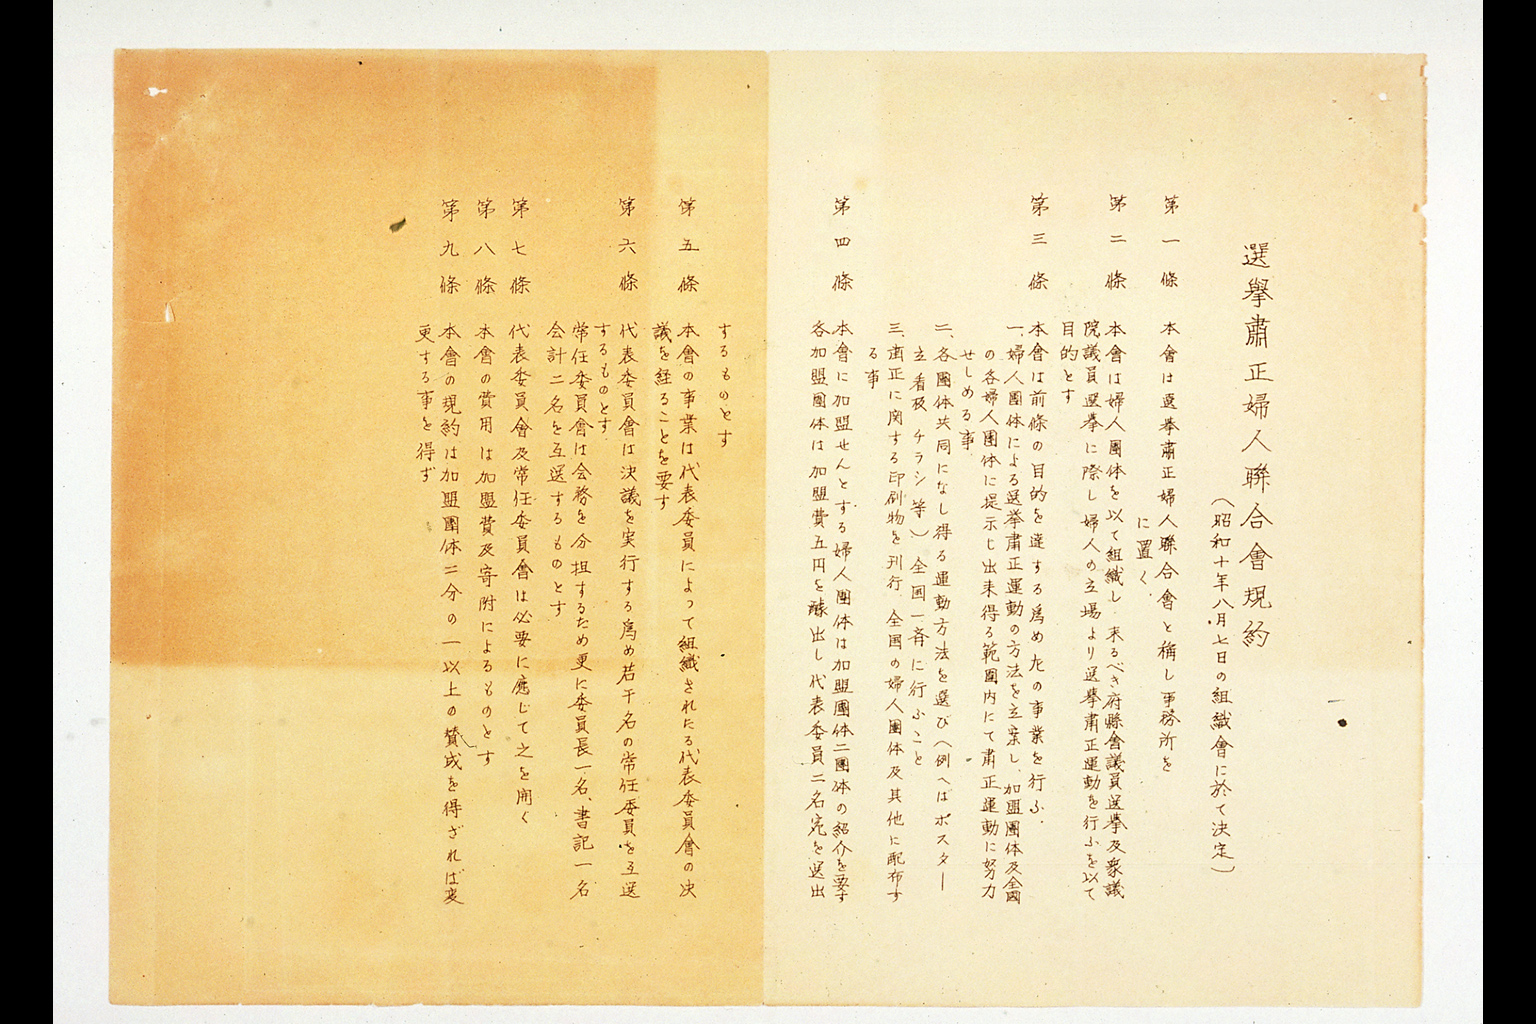 選擧肅正婦人聯合會規約
（昭和十年八月七日の組織會に於て決定）
第一條　本會は選挙肅正婦人聯合會と稱し事務所を
に置く．
第二條　本會は婦人團体を以て組織し来るべき府縣會議員選挙及衆議
院議員選挙に際し婦人の立場より選挙肅正運動を行ふを以て
目的とす
第三條　本會は前條の目的を達する爲め左の事業を行ふ．
一、婦人團体による選挙肅正運動の方法を立案し、加盟團体及全國
の各婦人團体に提示し出来得る範囲内にて肅正運動に努力
せしめる事
二、各團体共同になし得る運動方法を選び（例へばポスター
立看板　チラシ等）全国一斉に行ふこと
三、肅正に関する印刷物を刊行、全国の婦人團体及其他に配布す
る事
第四條　本會に加盟せんとする婦人團体は加盟團体二團体の紹介を要す
各加盟團体は加盟費五円を醵出し代表委員二名宛を選出
するものとす
第五條　本會の事業は代表委員によって組織されたる代表委員會の決
議を経ることを要す
第六條　代表委員會は決議を実行する爲め若干名の常任委員を互選
するものとす
常任委員會は会務を分担するため更に委員長一名、書記一名
会計二名を互選するものとす
第七條　代表委員會及常任委員會は必要に應じて之を開く
第八條　本會の費用は加盟費及寄附によるものとす
第九條　本會の規約は加盟團体二分の一以上の賛成を得ざれば変
更する事を得ず